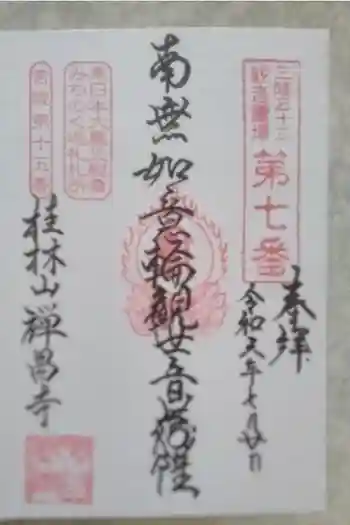 三陸三十三
観音霊場
第七番
奉拝
令和六年七月廿日
南無如意輪観世音菩薩
東日本大震災殉難者
みちのく巡礼札所
岩手県十五番
桂林山禅昌寺